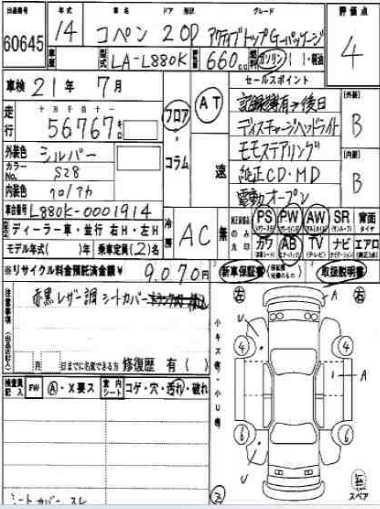 出品番号 年式 車名 ドア 形状 グレード 評価点
60645 14 コペン 2 OD アクティブトップGーパッケージ 4
型式 LA-L880K 660 ガソリン
車検 21年 7月 セールスポイント
走行 56767 フロア AT 記録簿有→後日 外装 B
ディスチャージヘッドライト
外装色 シルバー コラム モモステアリング
カラーNo. S28 純正CD・MD 内装 B
内装色 クロ/アカ 電動オープン
車台番号 L880K-0001914 冷房 AC PS PW AW SR 背面タイヤ
ディーラー車・並行 右H・左H カワ AB TV ナビ エアロ
モデル年式( )年 乗車定員(2)名
※リサイクル料金預託済金額¥ 9,070円 新車保証書 取扱説明書
注意事項 赤黒レザー調 シートカバー 左 A 右
小キズ有・小U有
U 4 4
月 日までに名変できる方 修復歴 有( ) A
検査員記入 FW A・X要ス 室内シート コゲ・穴・汚れ・破れ
6 6
U
シートカバースレ スペア